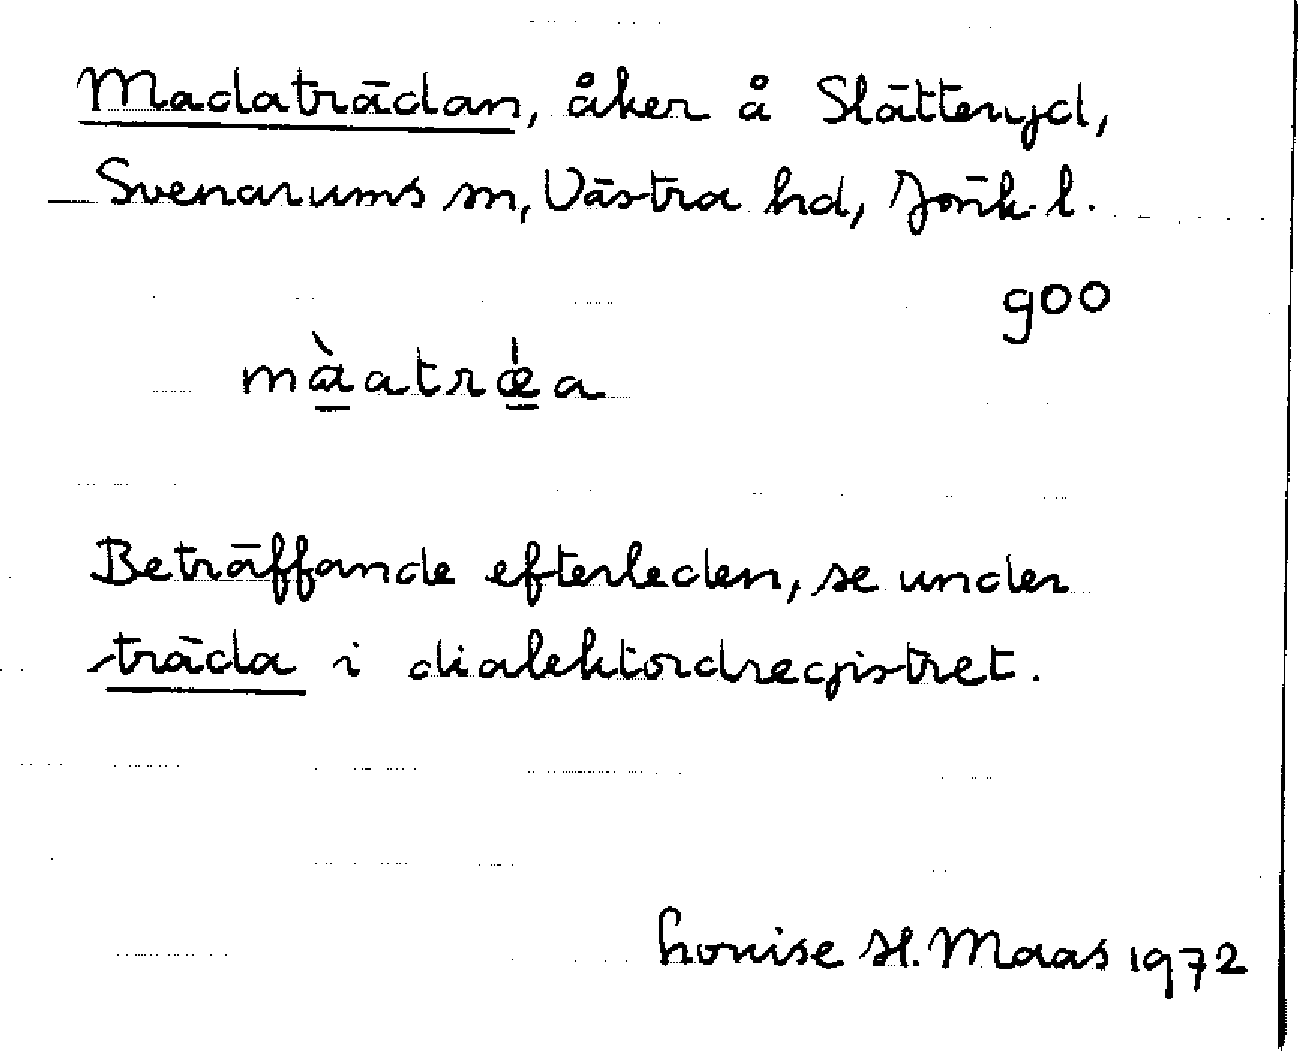 Madaträdan, åker å Slättenyd,
Svenarums sn, Västra hd, Jönk. l.
goo
màatrǽa
Beträffande efterleden, se under
träda i dialektordregistret.
Louise H. Maas 1972